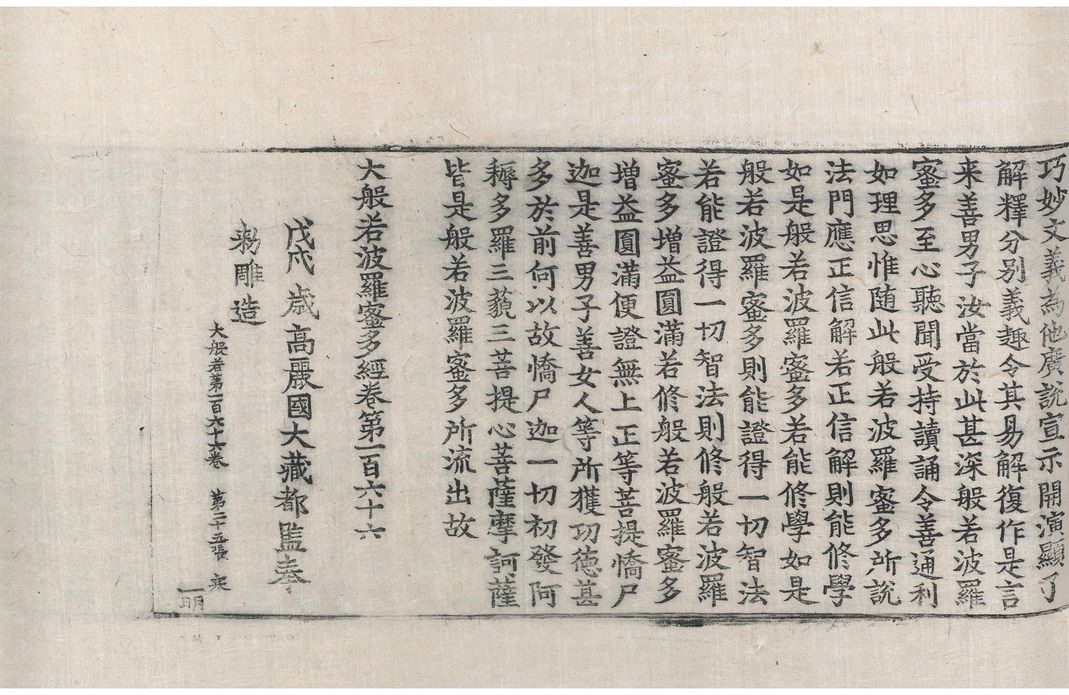 巧妙文義為他廣說宣示開演顯了
解釋分別義趣令其易解復作是言
来善男子汝當於此甚深般若波羅
蜜多至心聽聞受持讀誦令善通利
如理思惟随此般若波羅蜜多所說
法門應正信解若正信解則能修學
如是般若波羅蜜多若能修學如是
般若波羅蜜多則能證得一切智法
若能證得一切智法則修般若波羅
蜜多增益圓滿若修般若波羅蜜多
增益圓滿便證無上正等菩提憍尸
迦是善男子善女人等所獲功德甚
多於前何以故憍尸迦一切初發阿
耨多羅三藐三菩提心菩薩摩訶薩
皆是般若波羅蜜多所流出故
大般若波羅蜜多經卷第一百六十六
戊戌歲高麗國大藏都監奉
勑雕造
大般若第一百六十六卷 第二十五張 冬
明